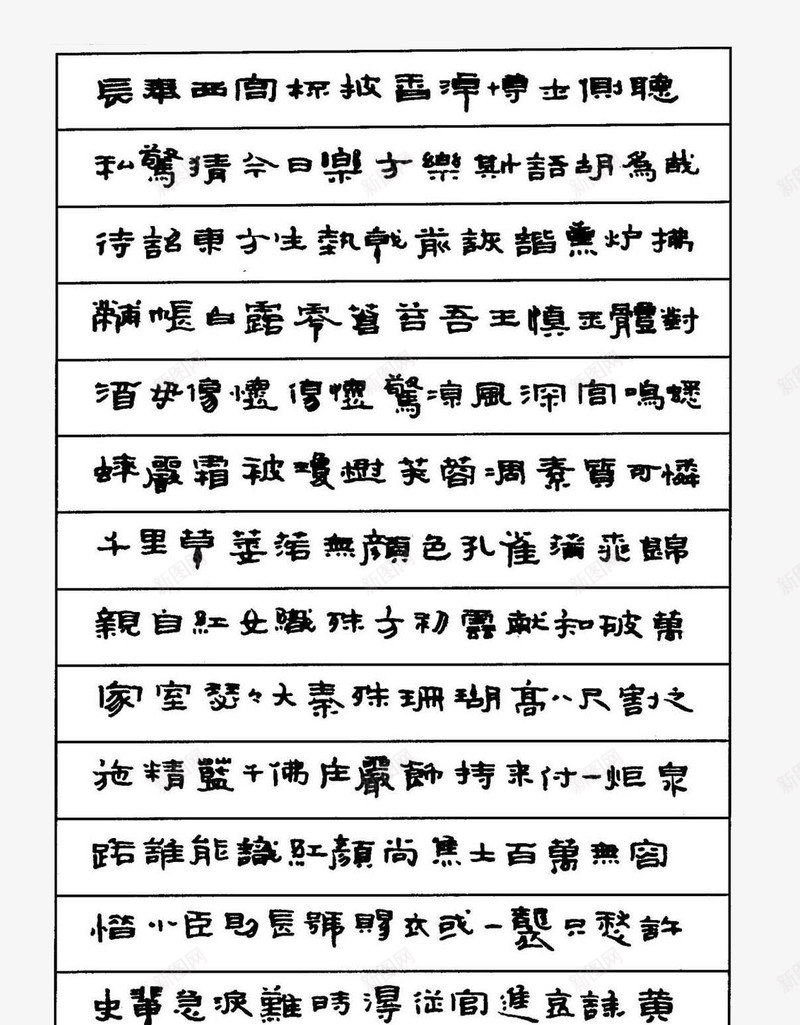 長奉西宫杯披香淖博士側聽
私驚猜今日樂方樂斯語胡為哉
待詔東方生執戟前詼諧熏炉拂
黼帳白露零蒼苔吾王慎玉體對
酒毋傷懷傷懷驚凉風深宫鳴蟋
蟀嚴霜被瓊樹芙蓉凋素質可憐
千里草萎落無顏色孔雀蒲桃錦
親自紅女織殊方初雲獻知破萬
家室瑟々大秦珠珊瑚高八尺割之
施精藍千佛庄嚴飾持来付一炬泉
路誰能識紅顏尚焦土百萬無容
惜小臣助長號賜衣或一襲只愁許
史輩急淚難時得從官進哀誄黄